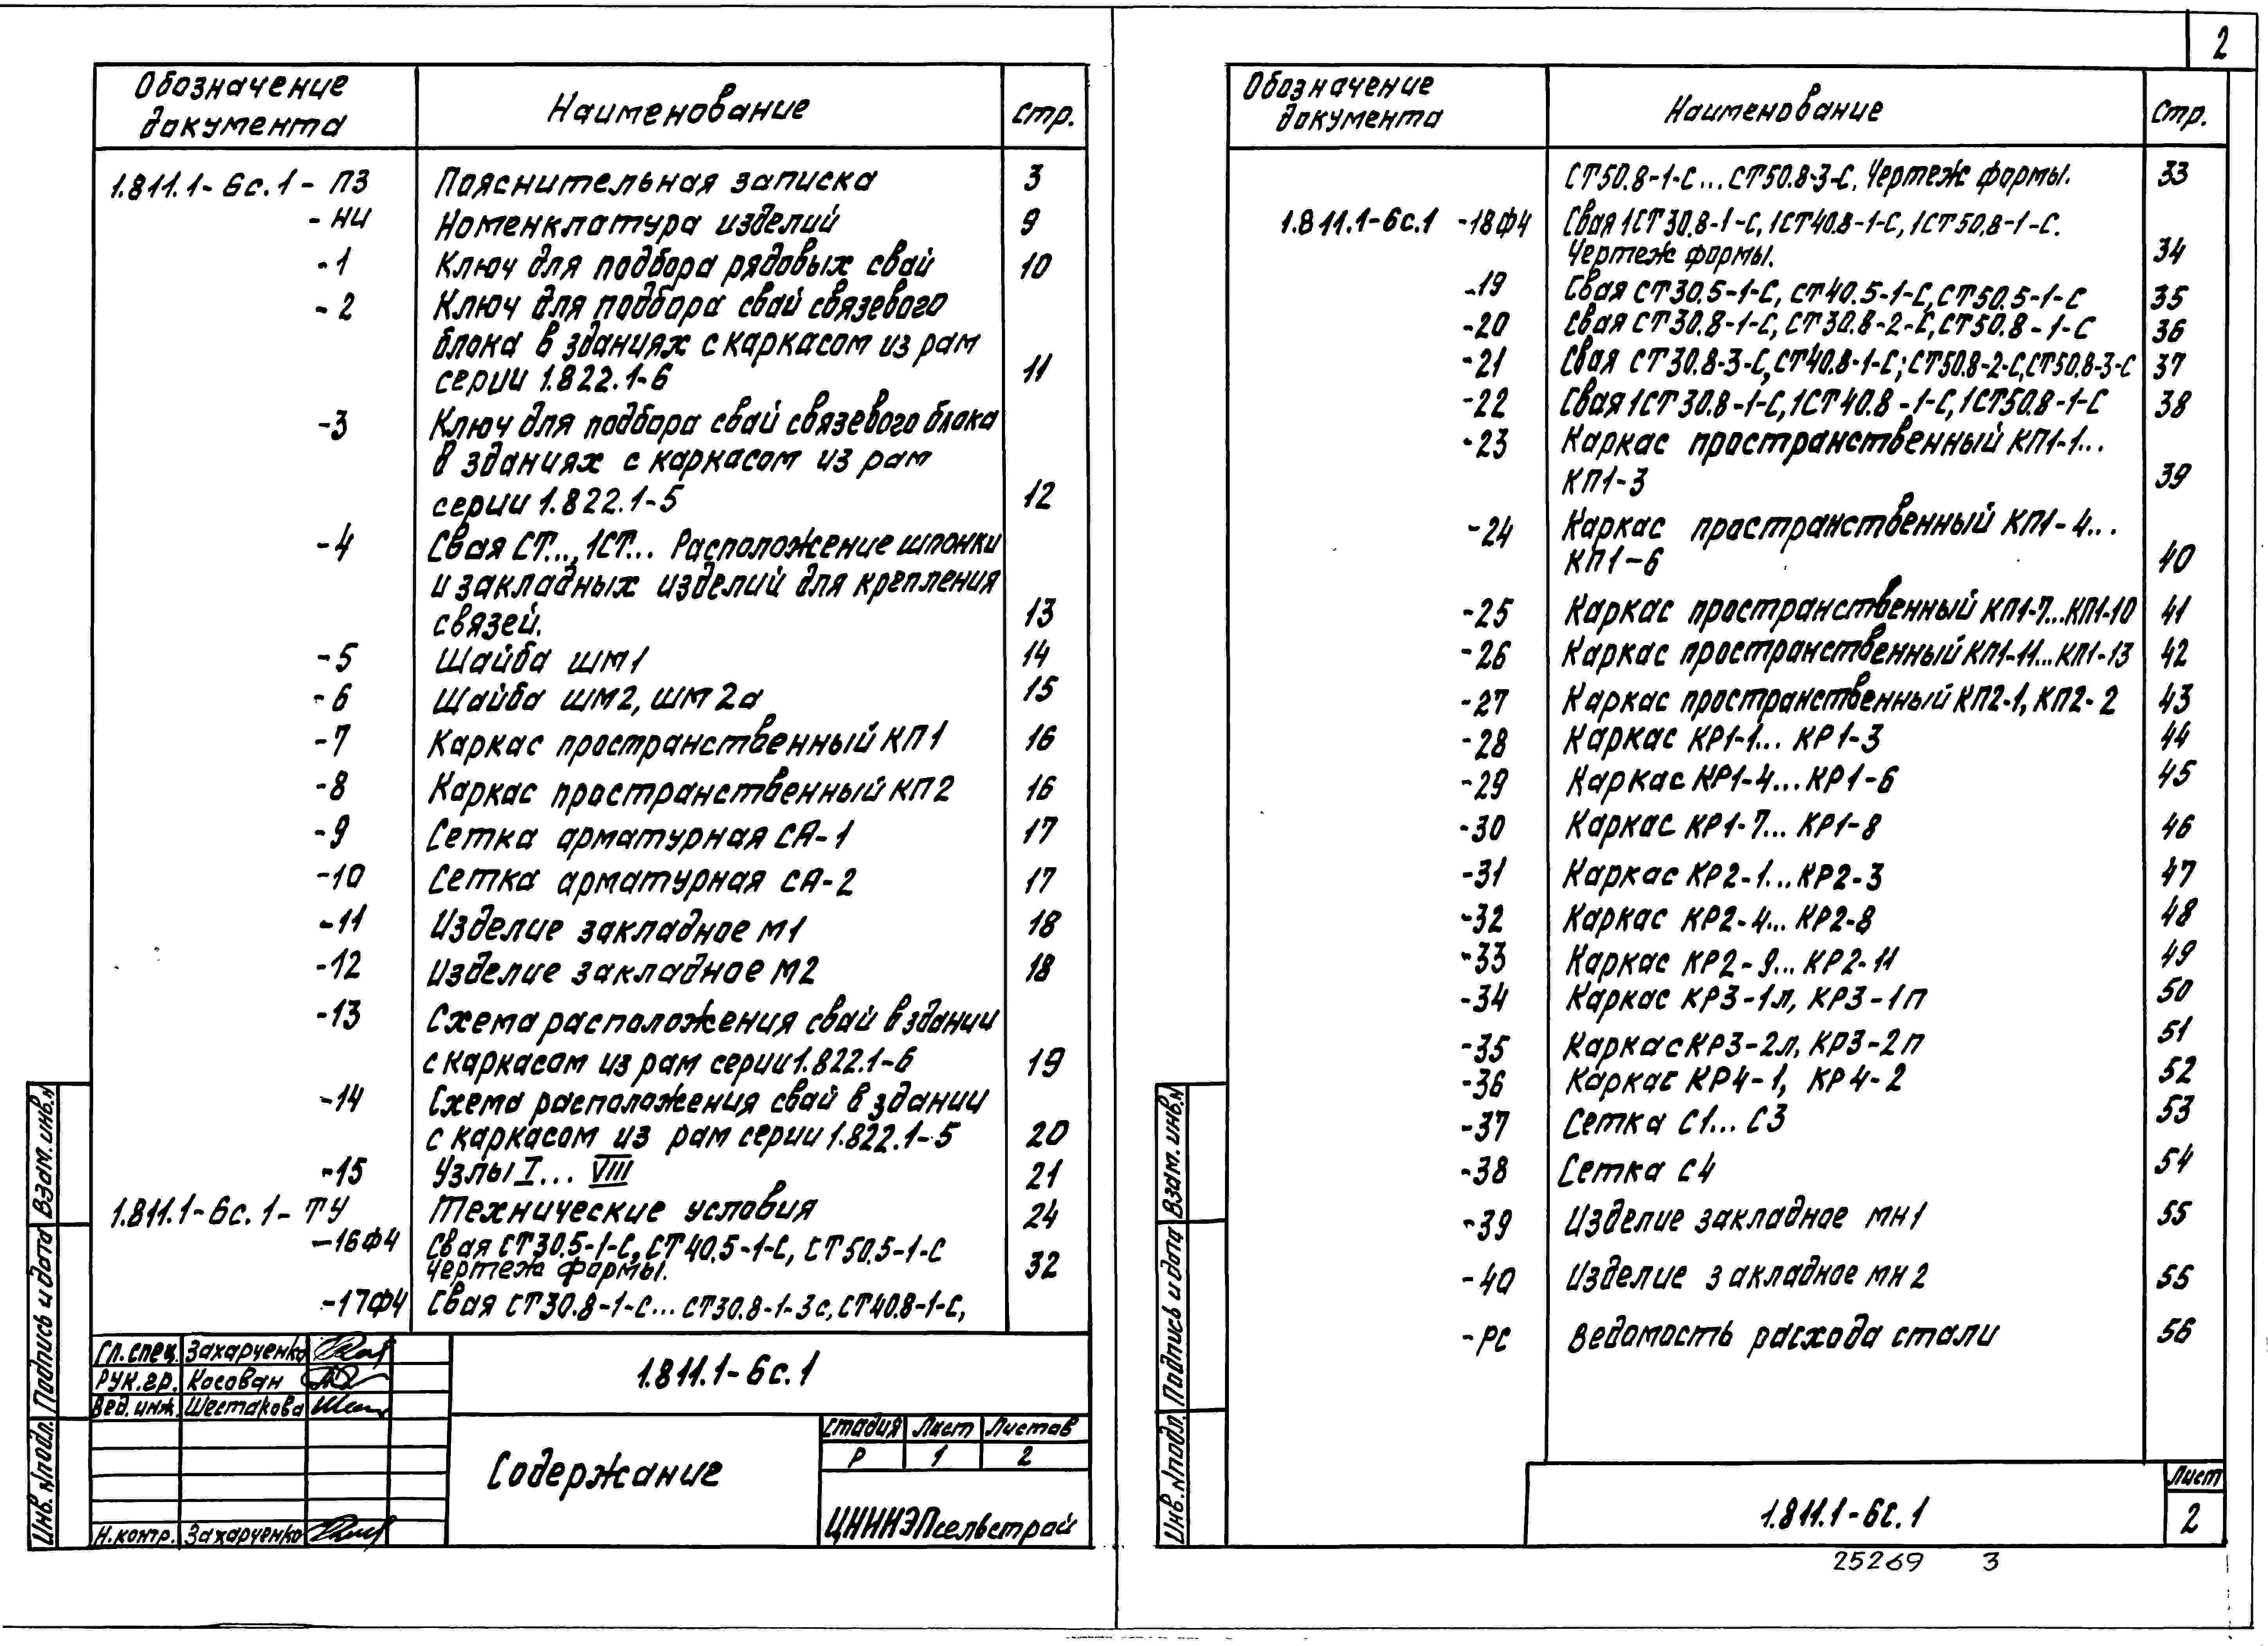 2
Обозначение документа Наименование Стр.
1.811.1-6с.1 - ПЗ Пояснительная записка 3
- НИ Номенклатура изделий 9
-1 Ключ для подбора рядовых свай 10
-2 Ключ для подбора свай связевого
блока в зданиях с каркасом из рам
серии 1.822.1-6 11
-3 Ключ для подбора свай связевого блока
в зданиях с каркасом из рам
серии 1.822.1-5 12
-4 Свая СТ..., 1СТ... Расположение шпонки
и закладных изделий для крепления
связей. 13
-5 Шайба шм1 14
-6 Шайба шм2, шм2а 15
-7 Каркас пространственный КП1 16
-8 Каркас пространственный КП2 16
-9 Сетка арматурная СА-1 17
-10 Сетка арматурная СА-2 17
-11 Изделие закладное М1 18
-12 Изделие закладное М2 18
-13 Схема расположения свай в здании
с каркасом из рам серии 1.822.1-6 19
-14 Схема расположения свай в здании
с каркасом из рам серии 1.822.1-5 20
-15 Узлы I... VIII 21
1.811.1-6с.1- ТУ Технические условия 24
-16Ф4 Свая СТ30.5-1-С, СТ40.5-1-С, СТ50.5-1-С
Чертеж формы. 32
-17Ф4 Свая СТ30.8-1-С... СТ30.8-1-3с, СТ40.8-1-С,
Гл. спец. Захарченко
Рук. гр. Косован
Вед. инж. Шестакова
Н. контр. Захарченко
1.811.1-6с.1
Содержание
Стадия Лист Листов
Р 1 2
ЦНИИЭПсельстрой
Инв. № подл. Подпись и дата Взам. инв. №
Обозначение документа Наименование Стр.
СТ50.8-1-С... СТ50.8-3-С. Чертеж формы. 33
1.811.1-6с.1 -18Ф4 Свая 1СТ30.8-1-С, 1СТ40.8-1-С, 1СТ50.8-1-С.
Чертеж формы. 34
-19 Свая СТ30.5-1-С, СТ40.5-1-С, СТ50.5-1-С 35
-20 Свая СТ30.8-1-С, СТ30.8-2-С, СТ50.8-1-С 36
-21 Свая СТ30.8-3-С, СТ40.8-1-С; СТ50.8-2-С, СТ50.8-3-С 37
-22 Свая 1СТ30.8-1-С, 1СТ40.8-1-С, 1СТ50.8-1-С 38
-23 Каркас пространственный КП1-1...
КП1-3 39
-24 Каркас пространственный КП1-4...
КП1-6 40
-25 Каркас пространственный КП1-7...КП1-10 41
-26 Каркас пространственный КП1-11...КП1-13 42
-27 Каркас пространственный КП2-1, КП2-2 43
-28 Каркас КР1-1... КР1-3 44
-29 Каркас КР1-4... КР1-6 45
-30 Каркас КР1-7... КР1-8 46
-31 Каркас КР2-1...КР2-3 47
-32 Каркас КР2-4... КР2-8 48
-33 Каркас КР2-9... КР2-11 49
-34 Каркас КР3-1л, КР3-1п 50
-35 Каркас КР3-2л, КР3-2п 51
-36 Каркас КР4-1, КР4-2 52
-37 Сетка С1... С3 53
-38 Сетка С4 54
-39 Изделие закладное мн1 55
-40 Изделие закладное мн2 55
-РС Ведомость расхода стали 56
1.811.1-6с.1
Лист
2
Инв. № подл. Подпись и дата Взам. инв. №
25269 3